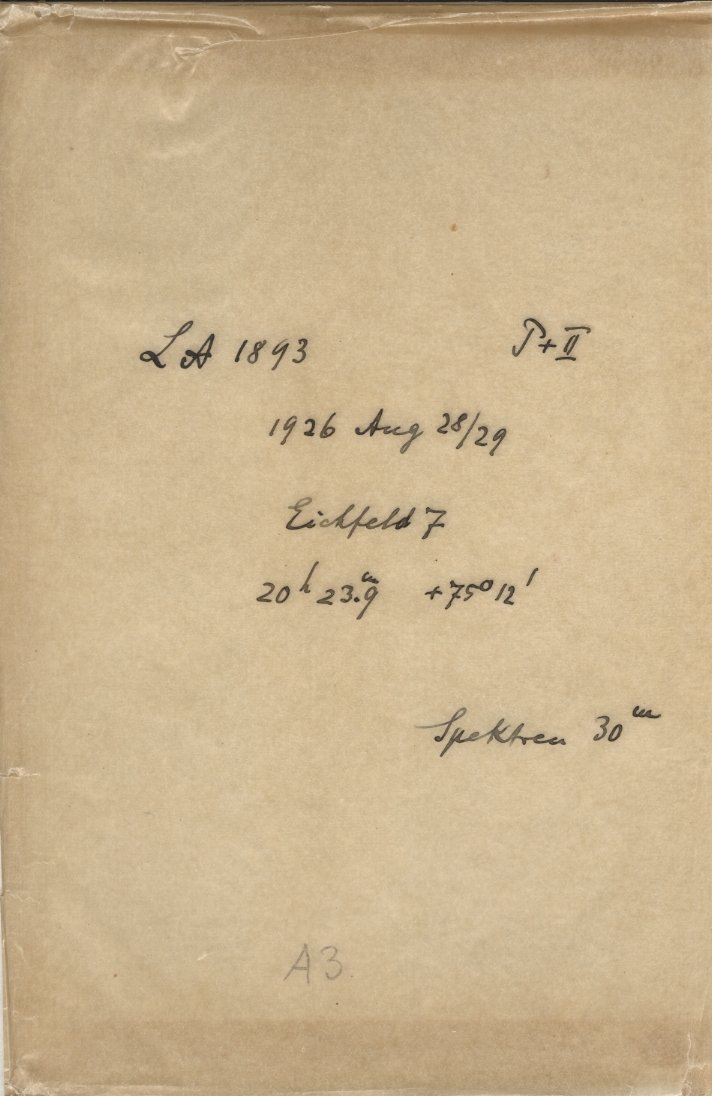 LA 1893 P+II
1926 Aug 28/29
Eichfeld 7
20ʰ 23.ᵐ9 +75° 12'
Spektren 30ᵐ
A3.